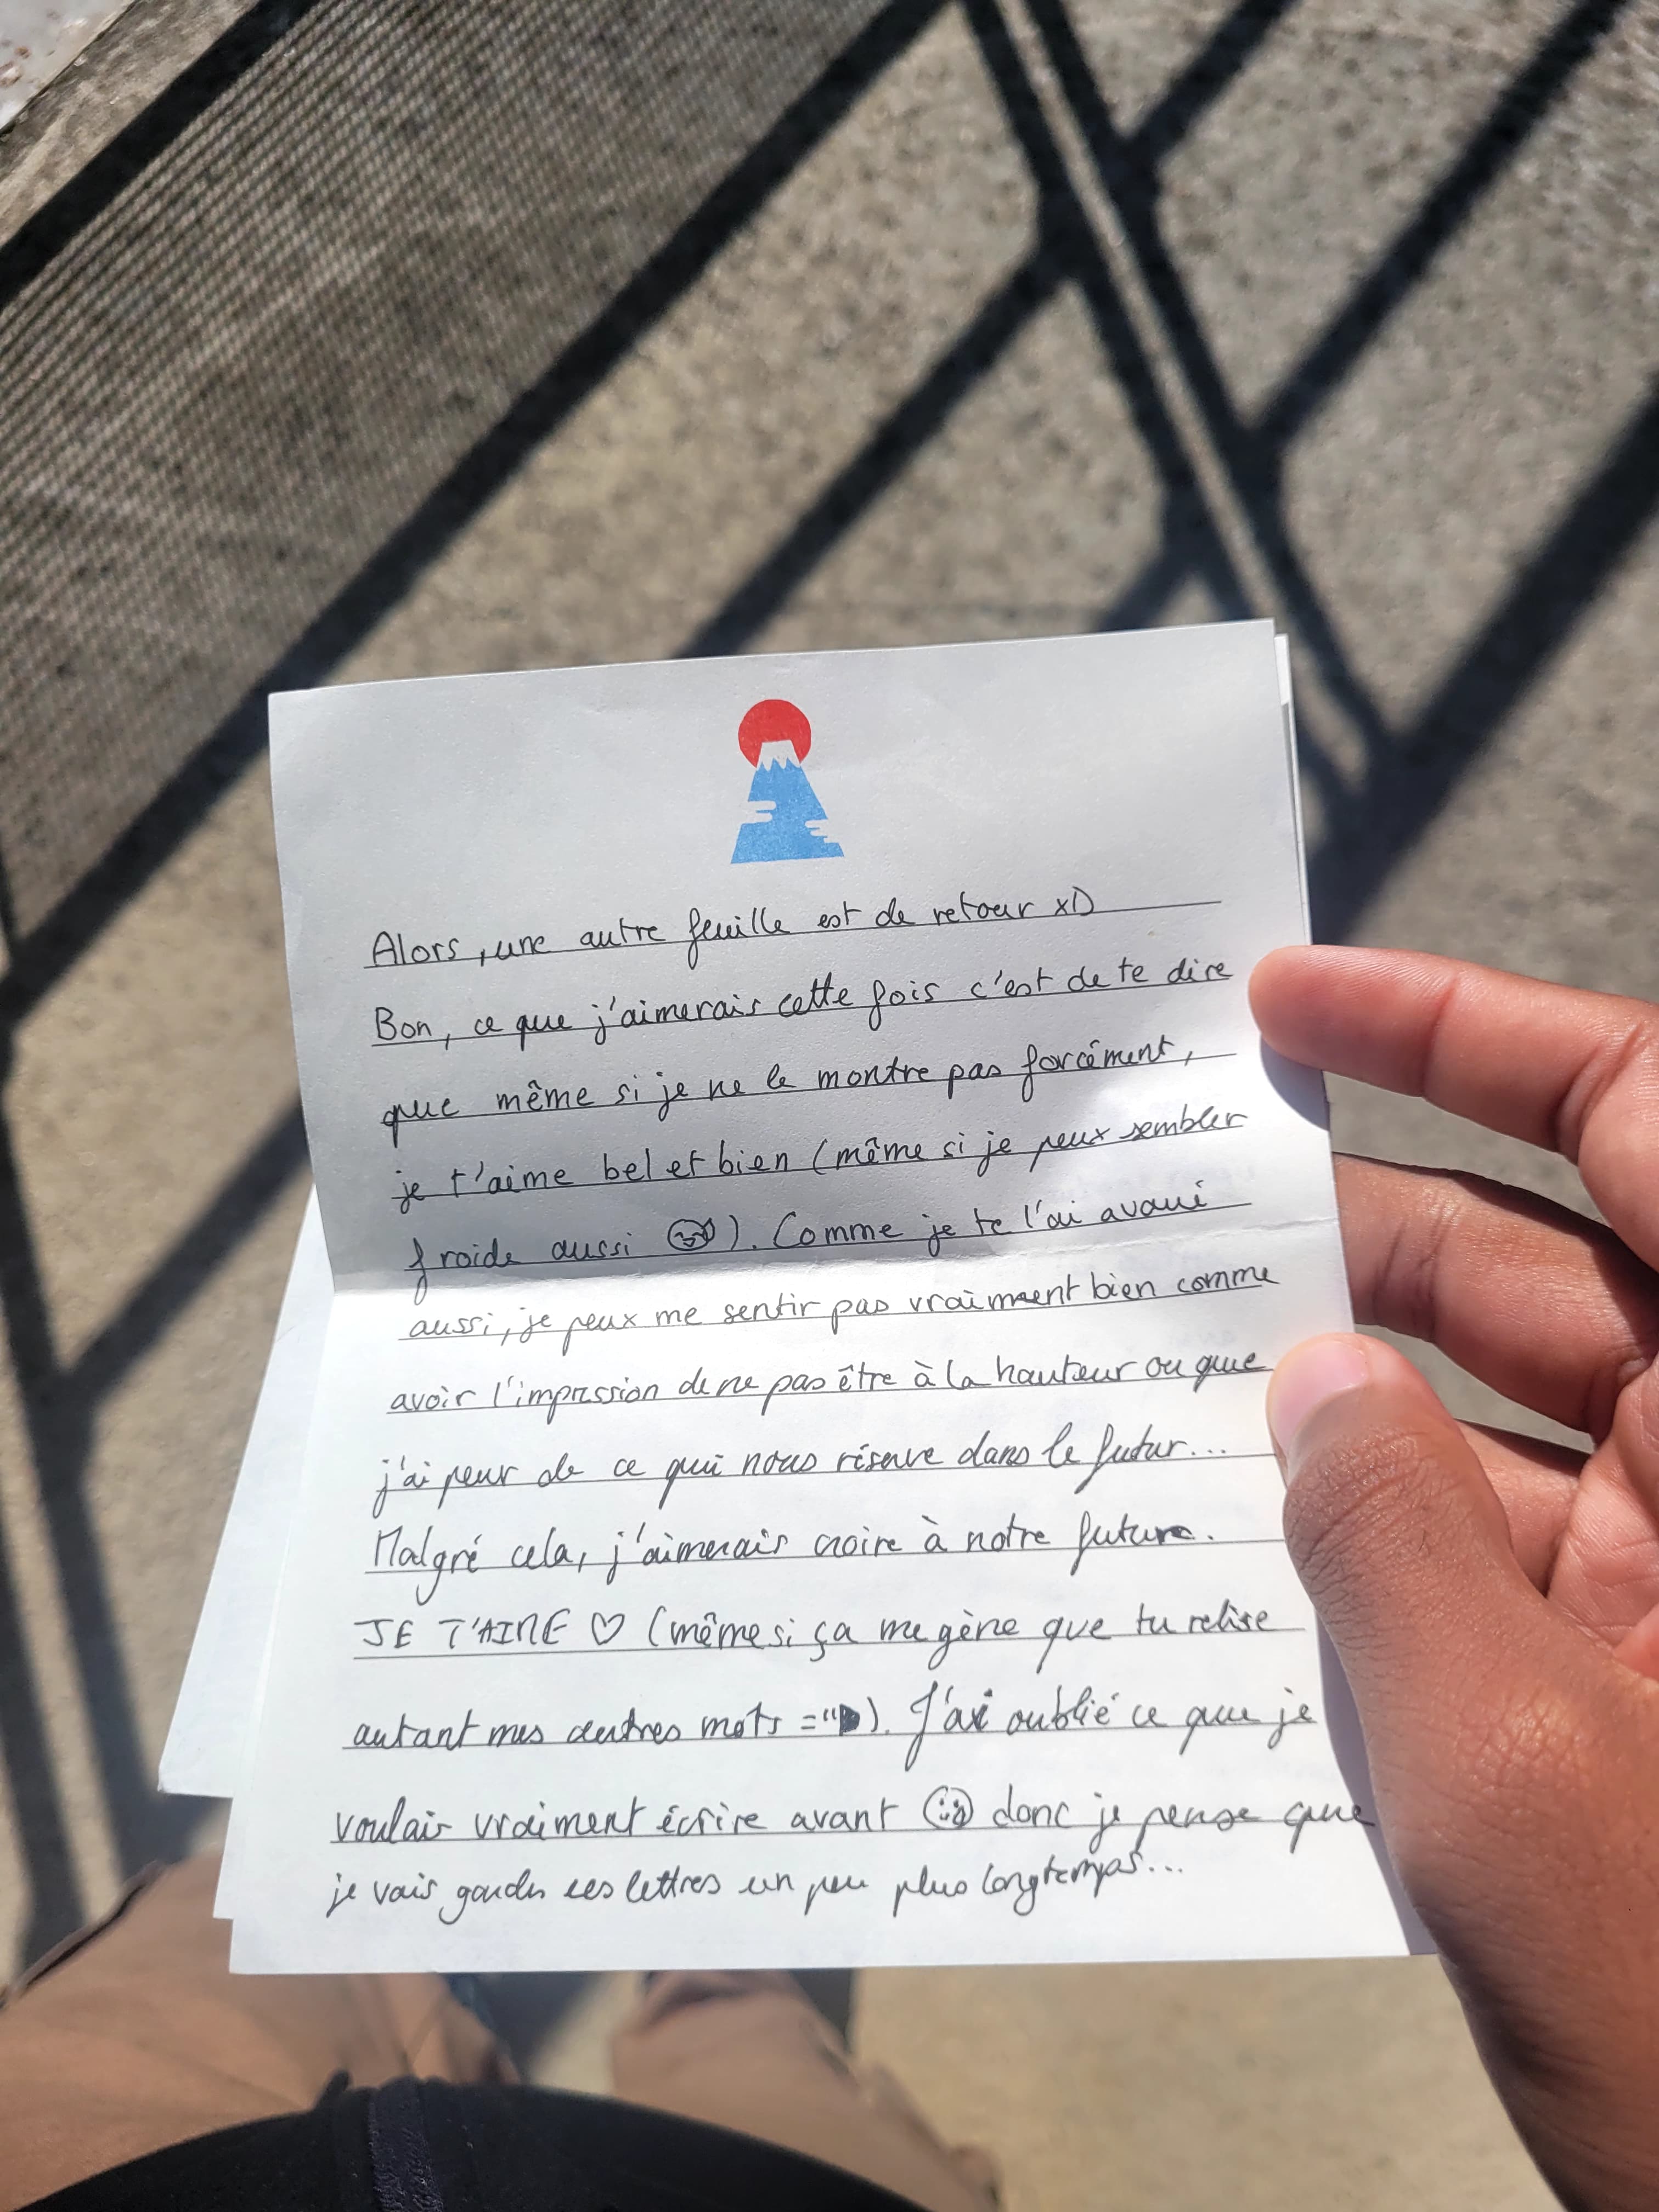 Alors, une autre feuille est de retour xD
Bon, ce que j'aimerais cette fois c'est de te dire
que même si je ne le montre pas forcément,
je t'aime bel et bien (même si je peux sembler
froide aussi ). Comme je te l'ai avoué
aussi, je peux me sentir pas vraiment bien comme
avoir l'impression de ne pas être à la hauteur ou que
j'ai peur de ce qui nous réserve dans le futur...
Malgré cela, j'aimerais croire à notre future.
JE T'AIME ♡ (même si ça me gène que tu relise
autant mes autres mots ="D). J'ai oublié ce que je
voulais vraiment écrire avant donc je pense que
je vais garder ces lettres un peu plus longtemps...